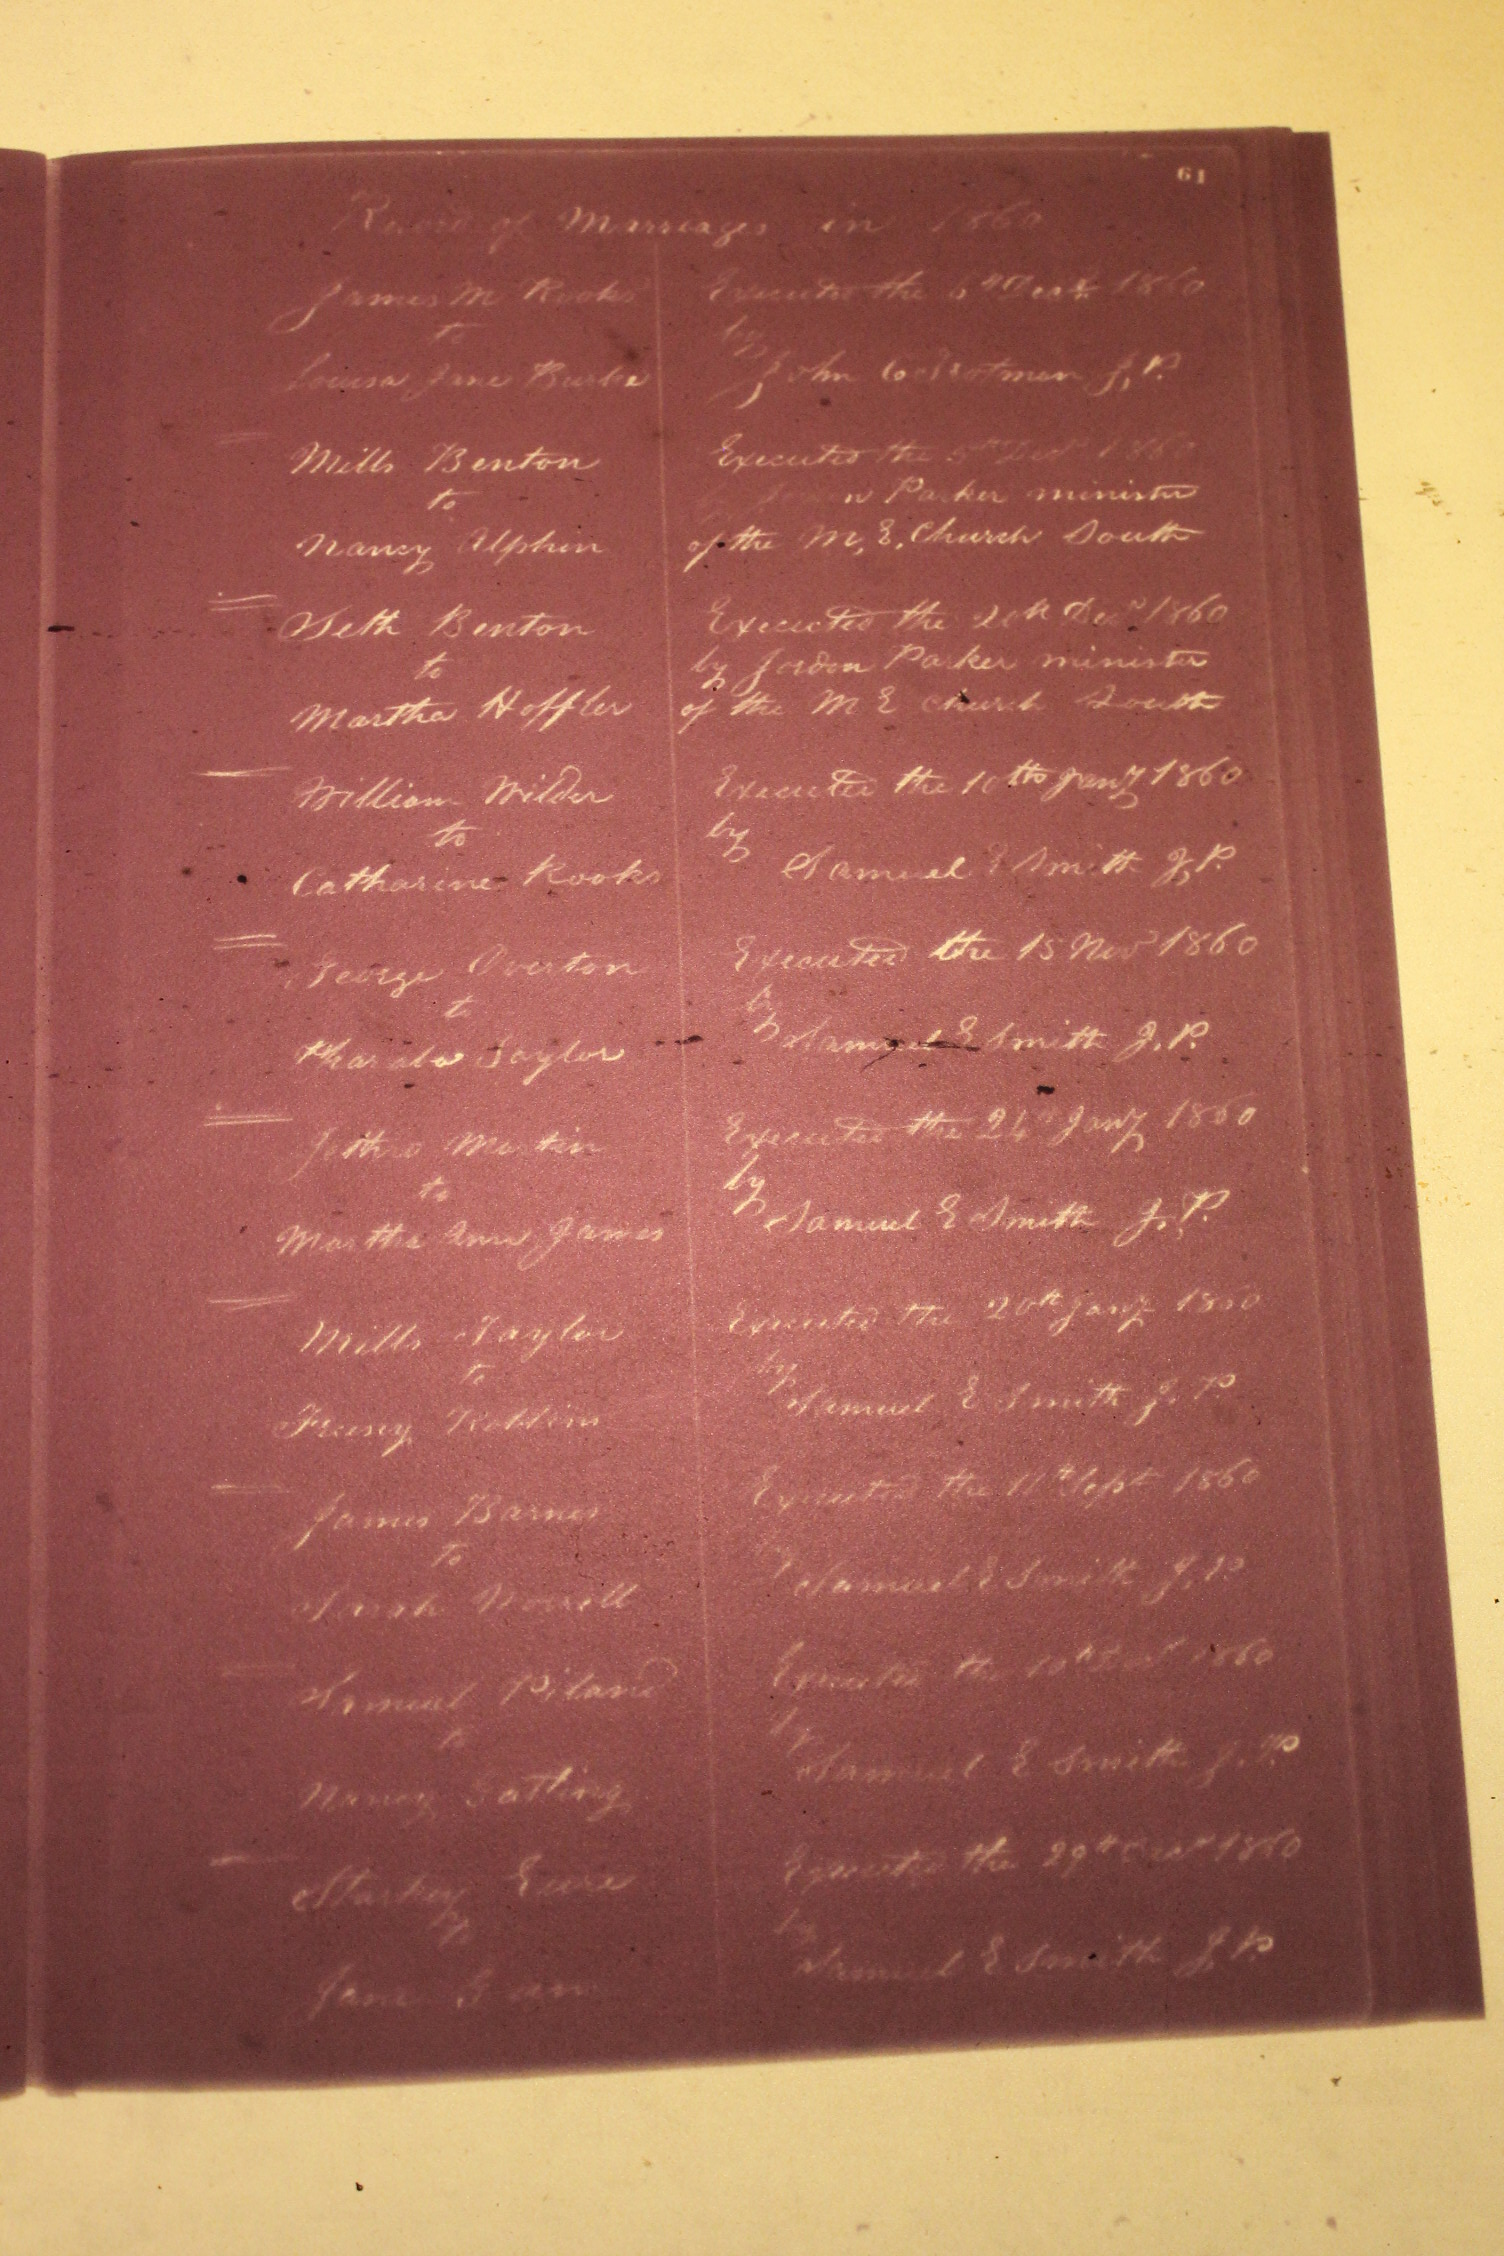 61
Record of Marriages in 1860
James M Rooks
to
Louisa Jane
Executed the 6th Decr 1860
by
John J. P.
Mills Benton
to
Nancy Alphin
Executed the 5th Decr 1860
by Jordon Parker minister
of the M, E, Church South
Seth Benton
to
Martha Hoffler
Executed the 20th Decr 1860
by Jordon Parker minister
of the M E church South
William Wilder
to
Catharine Rooks
Executed the 10th Jany 1860
by
Samuel E Smith J, P.
George Overton
to
Taylor
Executed the 15 Novr 1860
by
Samuel E Smith J. P.
Jethro Martin
to
Martha Ann James
Executed the 24th Jany 1860
by
Samuel E Smith J, P.
Mills Taylor
to
Robbins
Executed the 20th Jany 1860
by
Samuel E Smith J. P
James Barnes
to
Sarah Norvell
Executed the 11th Sept 1860
by
Samuel E Smith J, P
Samuel Piland
to
Nancy Gatling
Executed the 10th Decr 1860
by
Samuel E Smith J. P
Starkey Eure
to
Jane
Executed the 29th 1860
by
Samuel E Smith J P